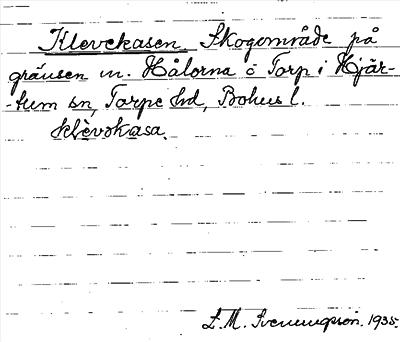 Klevekasen. Skogområde på
gränsen m. Hålorna o Torp i Hjär-
-tum sn, Torpe hd, Bohus l.
klèvekasa.
L. M. Svenungsson. 1935.